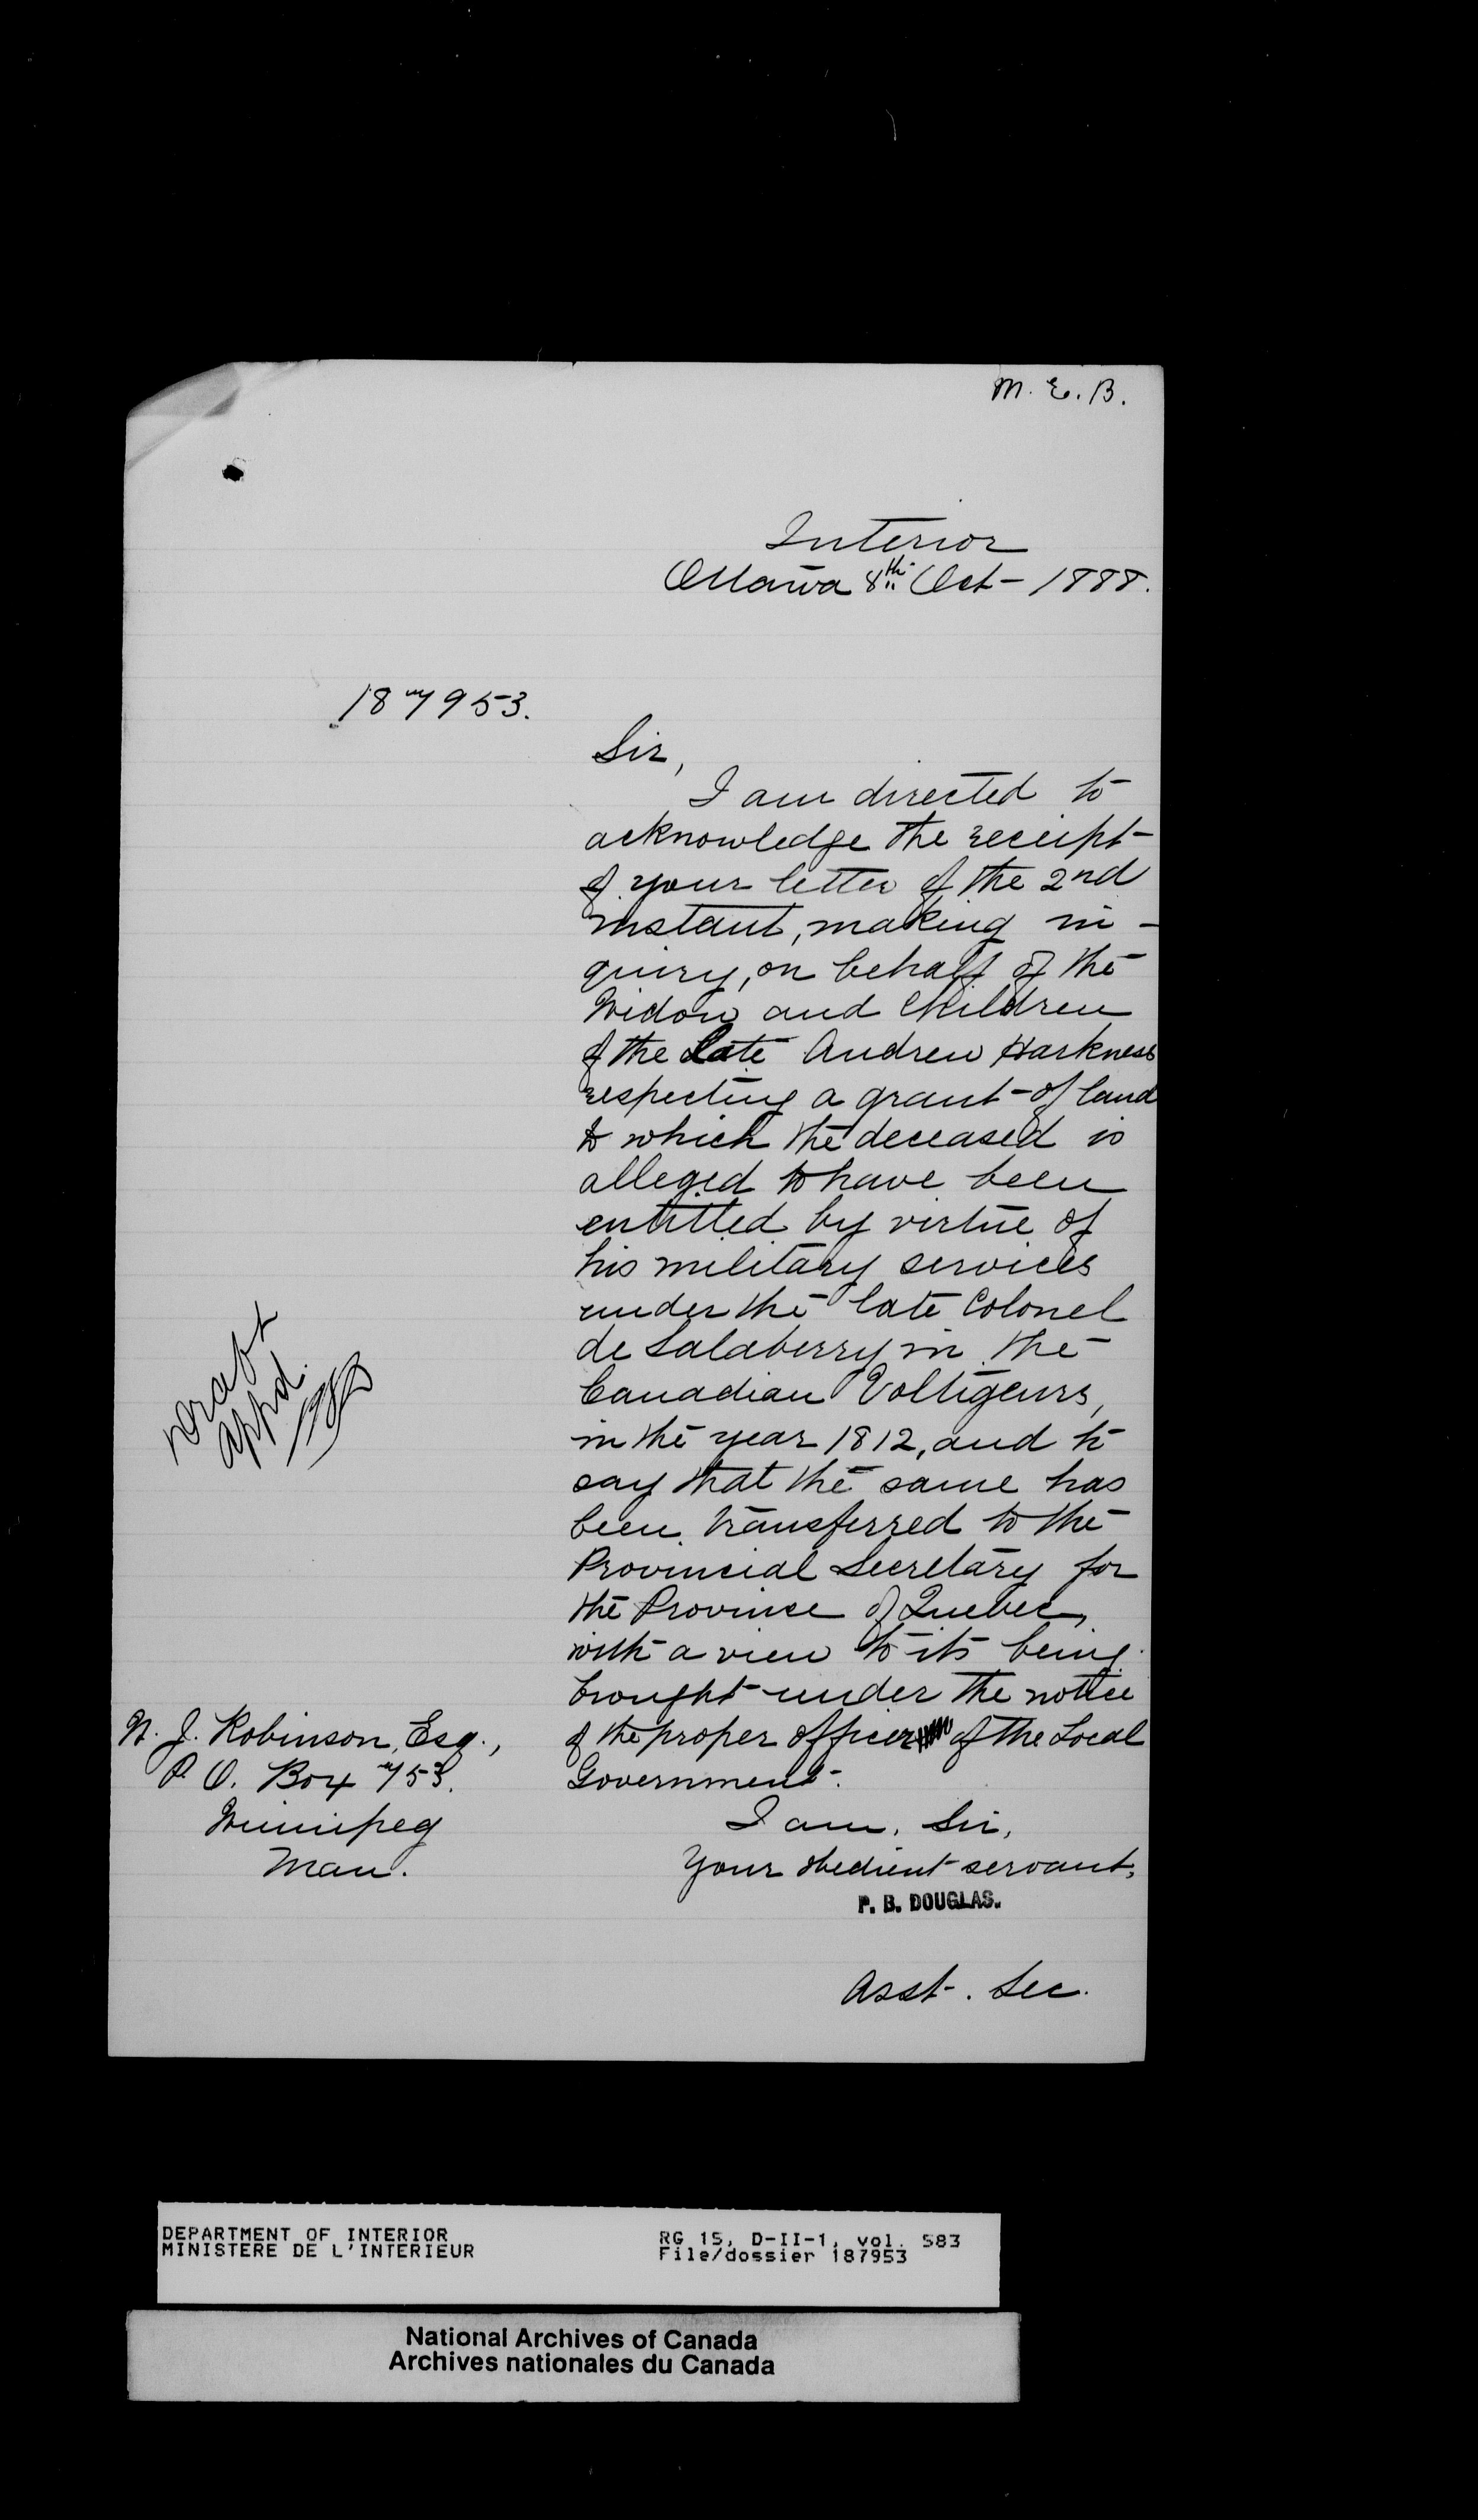 M. E. B.
Interior
Ottawa 8th Oct - 1888.
187953.
Sir,
I am directed to
acknowledge the receipt
of your letter of the 2nd
instant, making in-
quiry, on behalf of the
Widow and Children
of the Late Andrew Harkness
respecting a grant of land
to which the deceased is
alleged to have been
entitled by virtue of
his military services
under the late Colonel
de Salaberry in the
Canadian Voltigeurs,
in the year 1812, and to
say that the same has
been transferred to the
Provincial Secretary for
the Province of Quebec,
with a view to its being
brought under the notice
of the proper officer of the Local
Government.
I am, Sir,
Your obedient servant,
P. B. DOUGLAS.
Asst. Sec.
Draft
appd.
N. J. Robinson, Esq.,
P. O. Box 753.
Winnipeg
Man.
DEPARTMENT OF INTERIOR
MINISTERE DE L'INTERIEUR
RG 15, D-II-1, vol. 583
File/dossier 187953
National Archives of Canada
Archives nationales du Canada